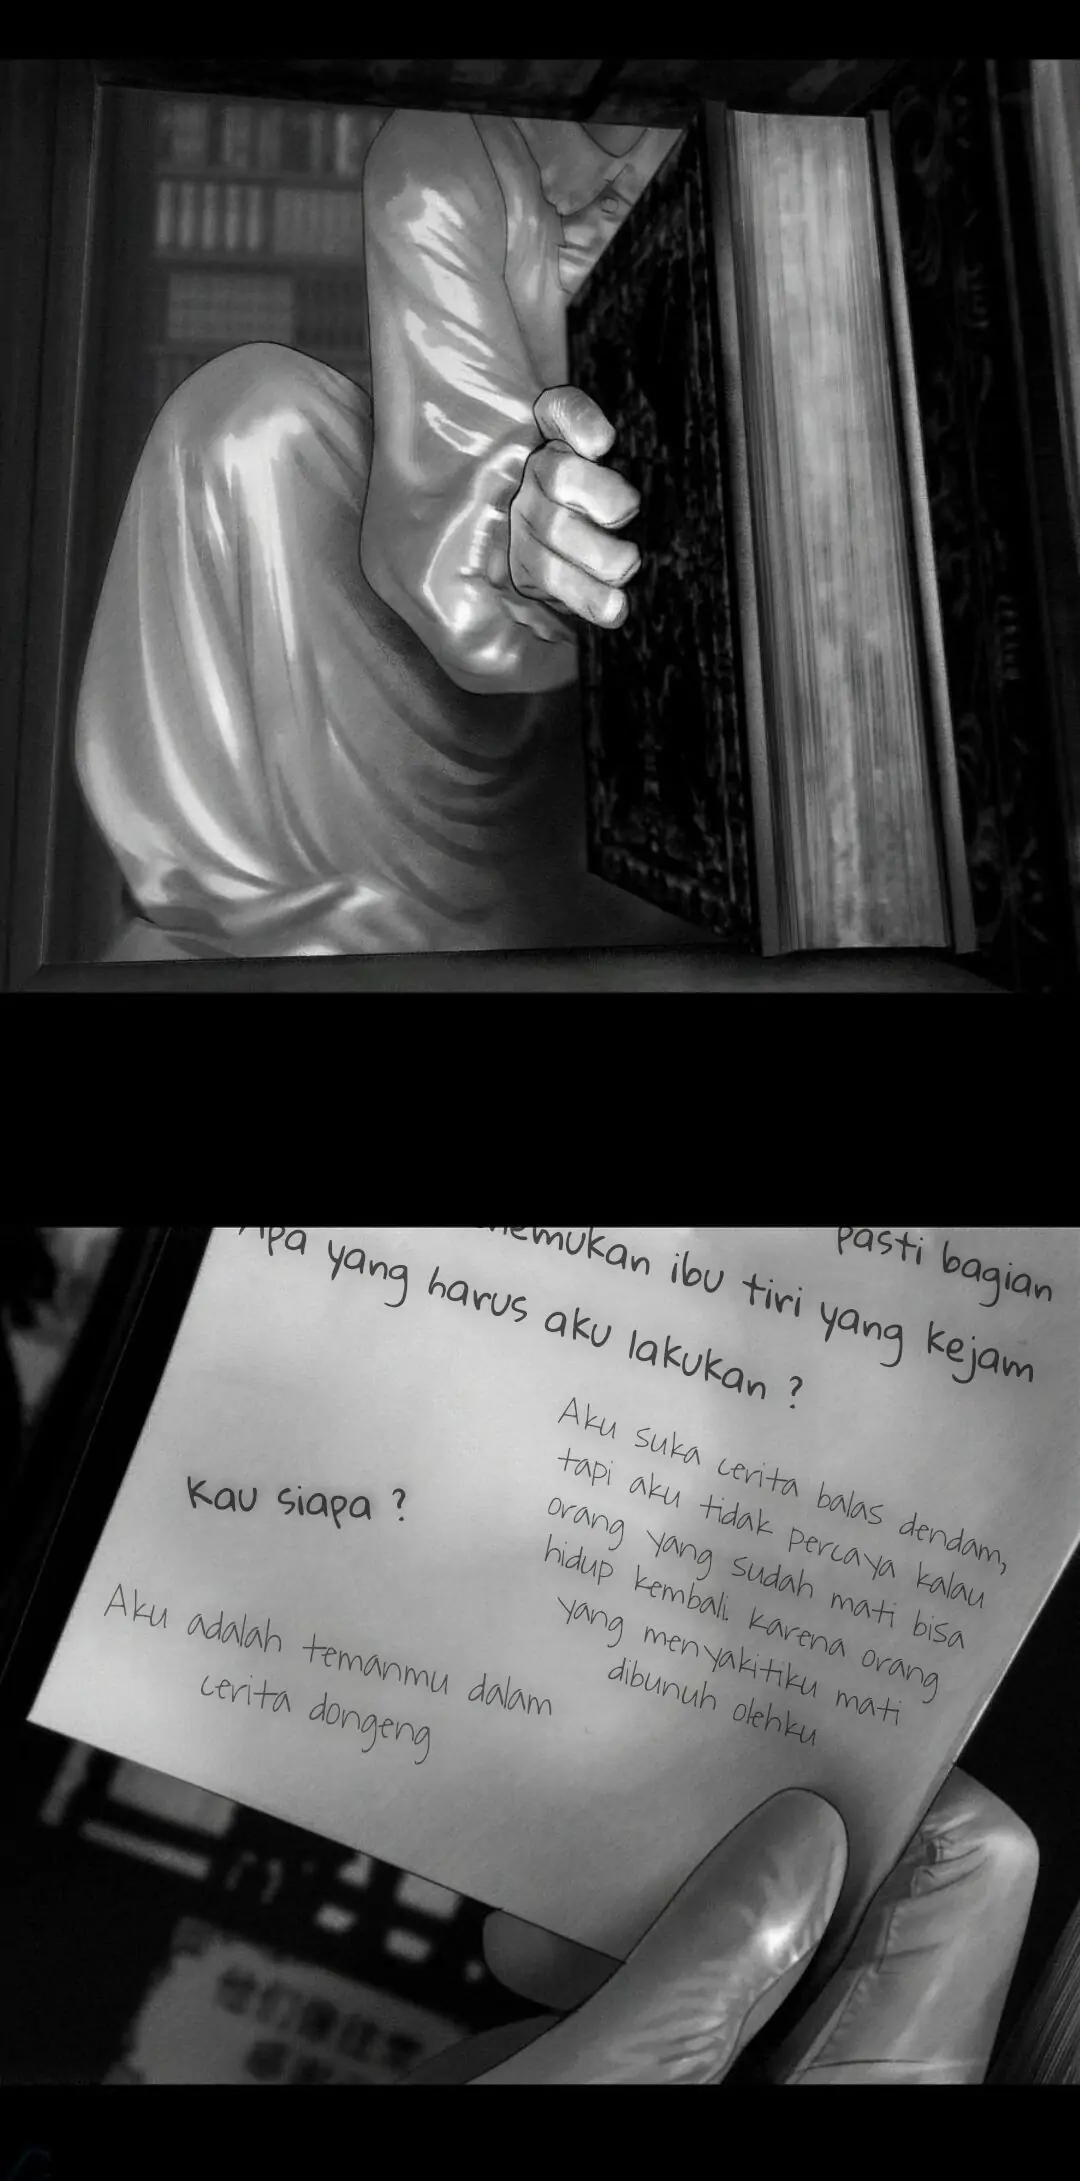 pasti bagian
ibu tiri yang kejam
Apa yang harus aku lakukan ?
Aku suka cerita balas dendam,
tapi aku tidak percaya kalau
orang yang sudah mati bisa
hidup kembali. karena orang
yang menyakitiku mati
dibunuh olehku
Kau siapa ?
Aku adalah temanmu dalam
cerita dongeng